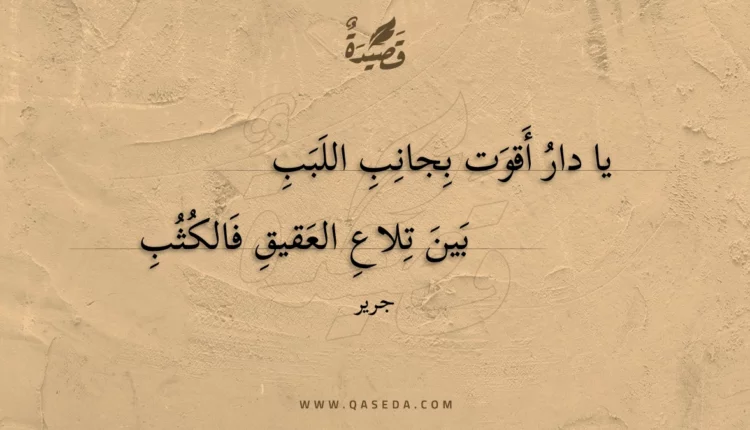 قَصِيدَةٌ
يا دارُ أَقوَت بِجانِبِ اللَبَبِ
بَينَ تِلاعِ العَقيقِ فَالكُثُبِ
جرير
WWW.QASEDA.COM